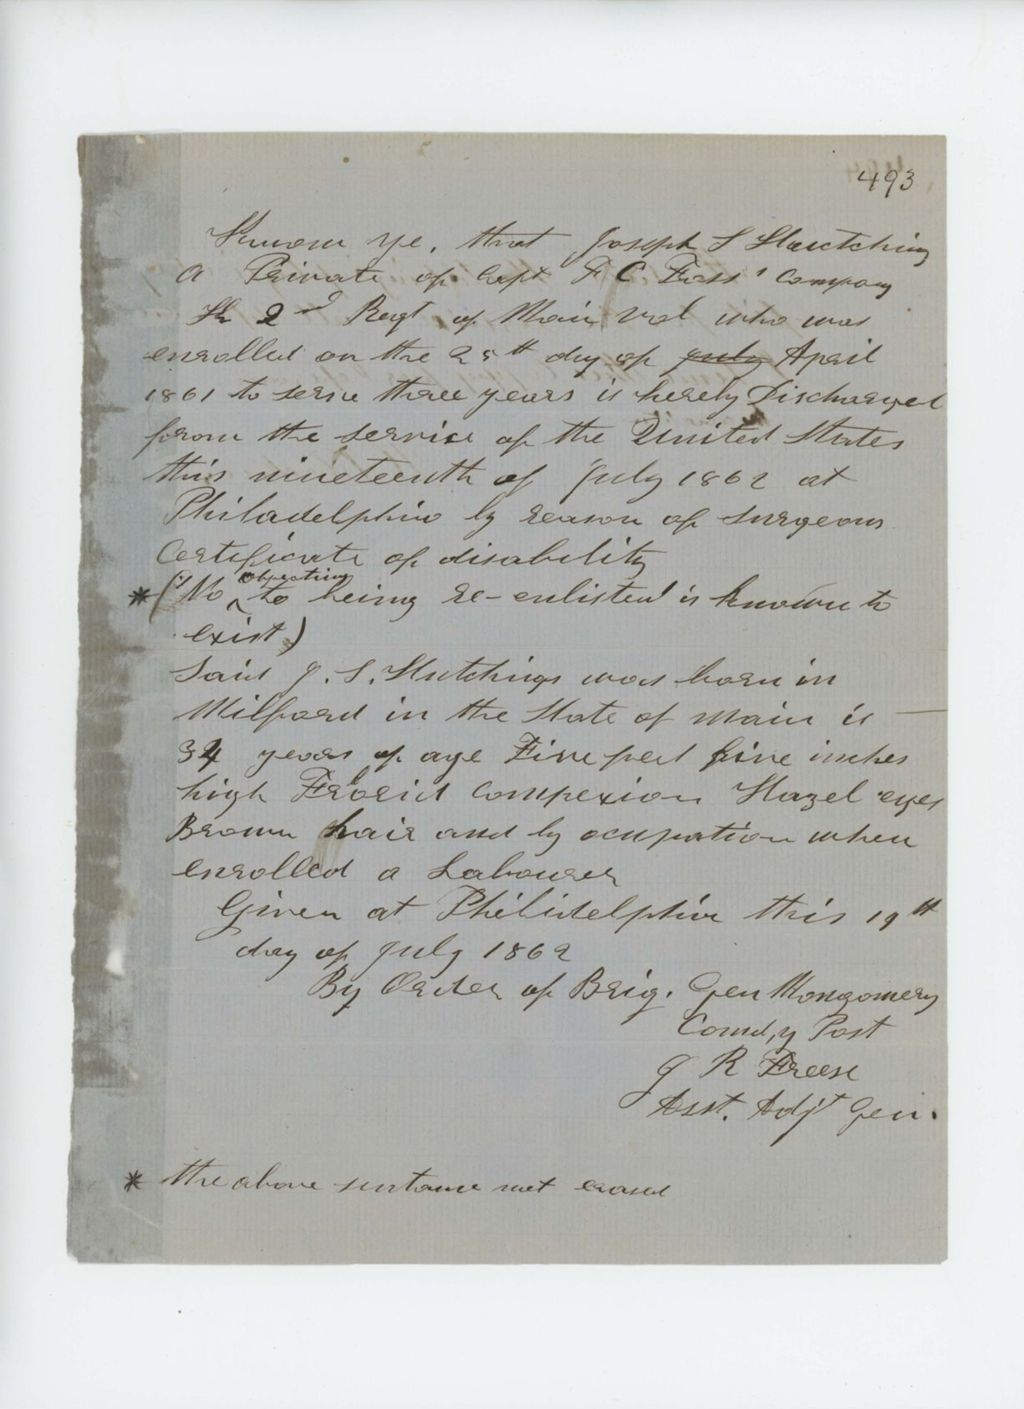 493
Know ye, that Joseph S Hutchins
a Private of Capt F C Foss' Company
the 2nd Regt of Main Vol who was
enrolled on the 28th day of July April
1861 to serve three years is hereby Discharged
from the service of the United States
this nineteenth of July 1862 at
Philadelphia by reason of surgeons
Certificate of disability
* ("No objection to being re-enlisted is known to
exist)
Said J. S. Hutchings was born in
Milford in the State of Main is —
34 years of age Five feet five inches
high Florid Compexion Hazel eyes
Brown hair and by ocupation when
enrolled a Labourer
Given at Philidelphia this 19th
day of July 1862
By Order of Brig. Gen Montgomery
Comd,y Post
J R Freese
Asst. Adjt Gen.
* the above sentance not erased